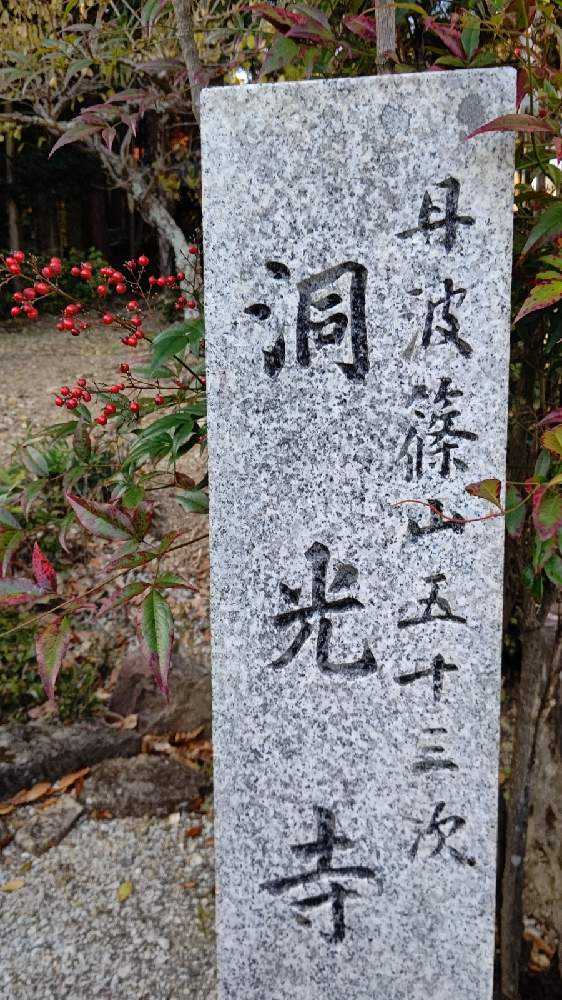 丹波篠山五十三次
洞光寺